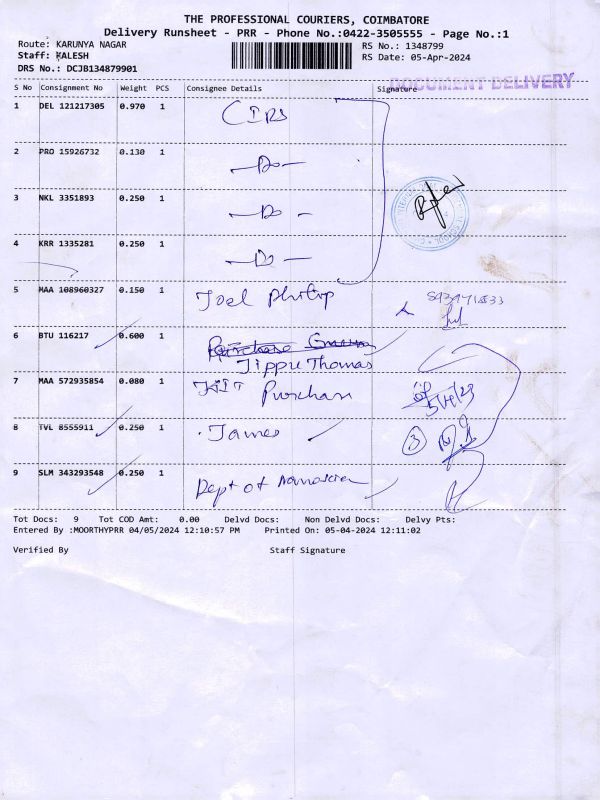 THE PROFESSIONAL COURIERS, COIMBATORE
Delivery Runsheet - PRR - Phone No.:0422-3505555 - Page No.:1
Route: KARUNYA NAGAR RS No.: 1348799
Staff: KALESH RS Date: 05-Apr-2024
DRS No.: DCJB134879901
DOCUMENT DELIVERY
S No Consignment No Weight PCS Consignee Details Signature
1 DEL 121217305 0.970 1
2 PRO 15926732 0.130 1 -Do-
3 NKL 3351893 0.250 1 -Do-
4 KRR 1335281 0.250 1 -Do-
5 MAA 108960327 0.150 1 Joel Philip
6 BTU 116217 0.600 1 Purchase
Jippu Thomas
7 MAA 572935854 0.080 1 Purchase
8 TVL 8555911 0.250 1 James 3
9 SLM 343293548 0.250 1 Dept of
Tot Docs: 9 Tot COD Amt: 0.00 Delvd Docs: Non Delvd Docs: Delvy Pts:
Entered By :MOORTHYPRR 04/05/2024 12:10:57 PM Printed On: 05-04-2024 12:11:02
Verified By Staff Signature